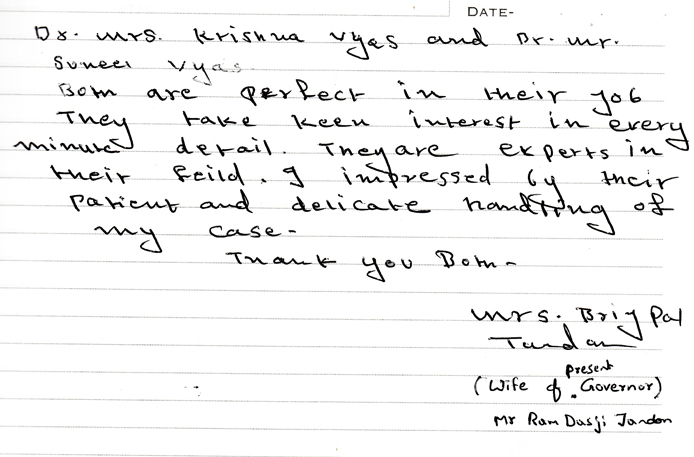 DATE-
Dr. Mrs. Krishna Vyas and Dr. Mr.
Suneel Vyas.
Both are perfect in their job
They take keen interest in every
minute detail. They are experts in
their feild. I impressed by their
patient and delicate handling of
my case-
Thank you Both-
Mrs. Brij Pal
Tandon
present
(Wife of . Governor)
Mr Ram Dasji Tandon